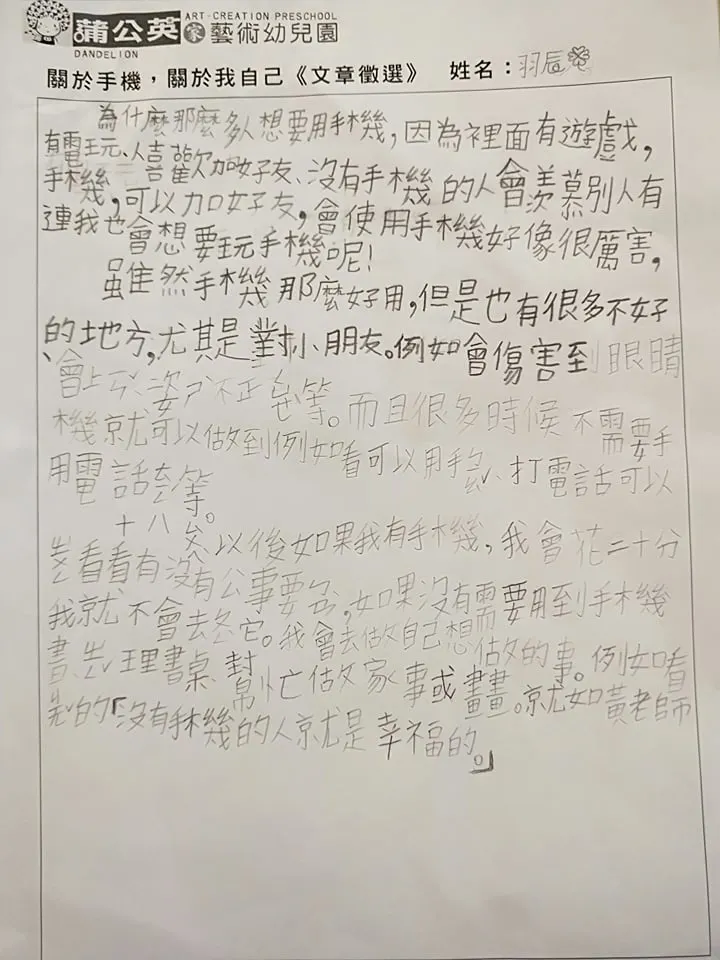 蒲公英
DANDELION
ART-CREATION PRESCHOOL
家
藝術幼兒園
關於手機,關於我自己《文章徵選》 姓名:羽辰
為什麼那麼多人想要用手機,因為裡面有遊戲,
有電玩、人喜歡加好友、沒有手機的人會羨慕別人有
手機,可以加好友,會使用手機好像很厲害,
連我也會想要玩手機呢!
雖然手機那麼好用,但是也有很多不好
的地方,尤其是對小朋友。例如會傷害到眼睛
、會上ㄞ、姿ㄕ不正ㄜ等。而且很多時候不需要手
機就可以做到例如看可以用手、打電話可以
用電話等。
十八歲以後如果我有手機,我會花二十分
看看有沒有公事要,如果沒有需要用到手機
我就不會去它。我會去做自己想做的事。例如看
書、理書桌、幫忙做家事或畫畫。就如黃老師
的「沒有手機的人就是幸福的。」